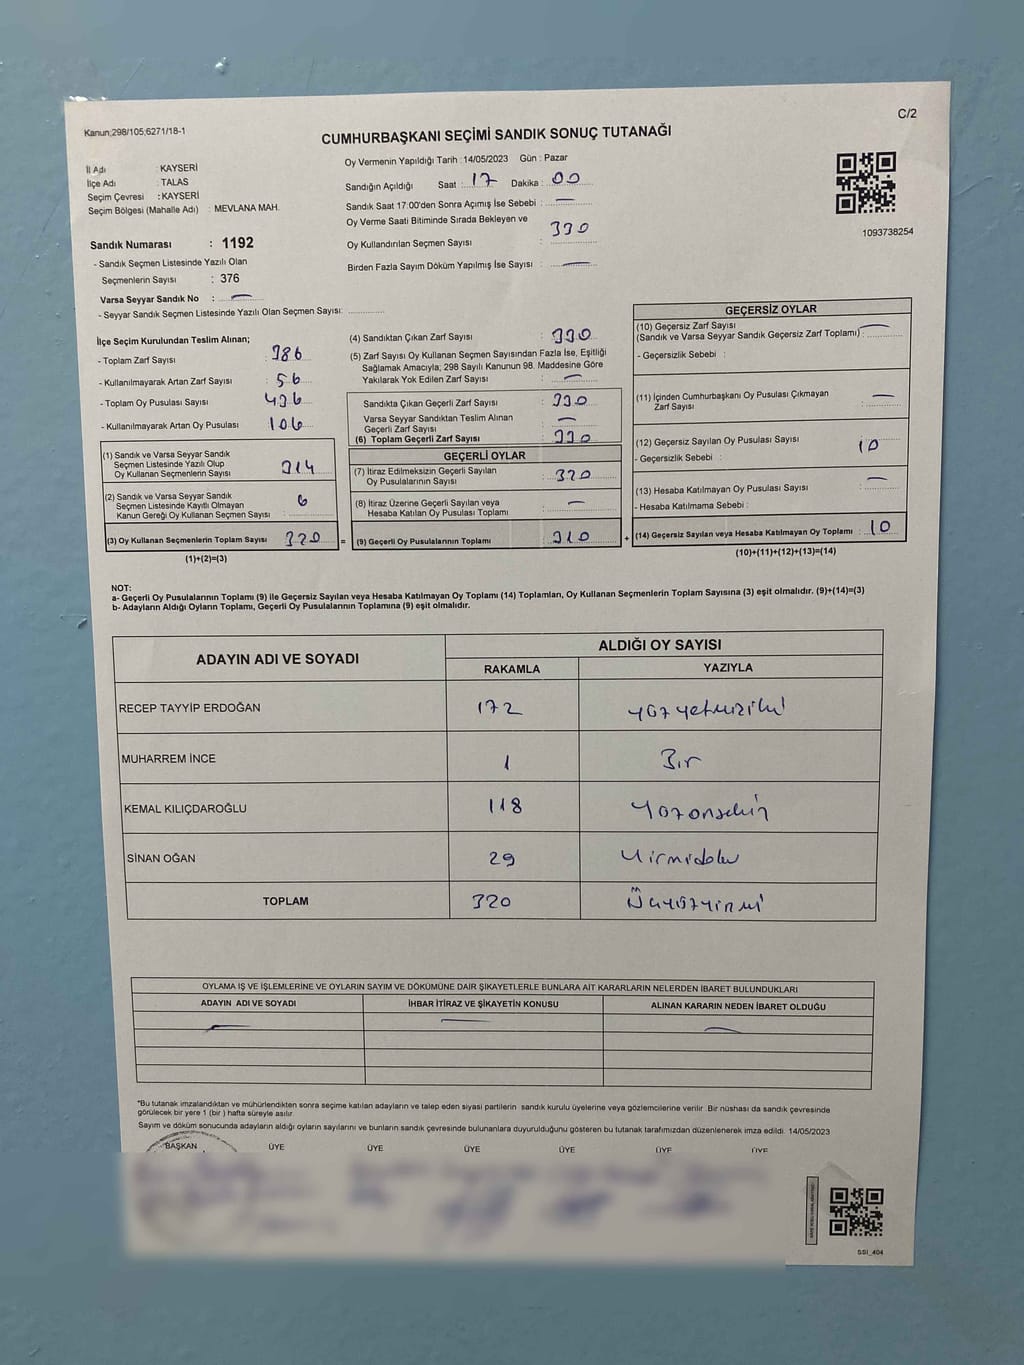 Kanun;298/105;6271/18-1
C/2
CUMHURBAŞKANI SEÇİMİ SANDIK SONUÇ TUTANAĞI
İl Adı : KAYSERİ
İlçe Adı : TALAS
Seçim Çevresi : KAYSERİ
Seçim Bölgesi (Mahalle Adı) : MEVLANA MAH.
Sandık Numarası : 1192
- Sandık Seçmen Listesinde Yazılı Olan
Seçmenlerin Sayısı : 376
Varsa Seyyar Sandık No : —
- Seyyar Sandık Seçmen Listesinde Yazılı Olan Seçmen Sayısı:
Oy Vermenin Yapıldığı Tarih : 14/05/2023 Gün : Pazar
Sandığın Açıldığı Saat : 17 Dakika : 00
Sandık Saat 17:00'den Sonra Açımış İse Sebebi : —
Oy Verme Saati Bitiminde Sırada Bekleyen ve
Oy Kullandırılan Seçmen Sayısı : 330
Birden Fazla Sayım Döküm Yapılmış İse Sayısı : —
1093738254
İlçe Seçim Kurulundan Teslim Alınan;
- Toplam Zarf Sayısı : 386
- Kullanılmayarak Artan Zarf Sayısı : 56
- Toplam Oy Pusulası Sayısı : 436
- Kullanılmayarak Artan Oy Pusulası : 106
(1) Sandık ve Varsa Seyyar Sandık
Seçmen Listesinde Yazılı Olup
Oy Kullanan Seçmenlerin Sayısı : 314
(2) Sandık ve Varsa Seyyar Sandık
Seçmen Listesinde Kayıtlı Olmayan
Kanun Gereği Oy Kullanan Seçmen Sayısı : 6
(3) Oy Kullanan Seçmenlerin Toplam Sayısı : 320 =
(1)+(2)=(3)
(4) Sandıktan Çıkan Zarf Sayısı : 330
(5) Zarf Sayısı Oy Kullanan Seçmen Sayısından Fazla İse, Eşitliği
Sağlamak Amacıyla; 298 Sayılı Kanunun 98. Maddesine Göre
Yakılarak Yok Edilen Zarf Sayısı : —
Sandıkta Çıkan Geçerli Zarf Sayısı : 330
Varsa Seyyar Sandıktan Teslim Alınan
Geçerli Zarf Sayısı : —
(6) Toplam Geçerli Zarf Sayısı : 330
GEÇERLİ OYLAR
(7) İtiraz Edilmeksizin Geçerli Sayılan
Oy Pusulalarının Sayısı : 320
(8) İtiraz Üzerine Geçerli Sayılan veya
Hesaba Katılan Oy Pusulası Toplamı : —
(9) Geçerli Oy Pusulalarının Toplamı : 310 +
GEÇERSİZ OYLAR
(10) Geçersiz Zarf Sayısı
(Sandık ve Varsa Seyyar Sandık Geçersiz Zarf Toplamı) : —
- Geçersizlik Sebebi :
(11) İçinden Cumhurbaşkanı Oy Pusulası Çıkmayan
Zarf Sayısı : —
(12) Geçersiz Sayılan Oy Pusulası Sayısı : 10
- Geçersizlik Sebebi :
(13) Hesaba Katılmayan Oy Pusulası Sayısı : —
- Hesaba Katılmama Sebebi :
(14) Geçersiz Sayılan veya Hesaba Katılmayan Oy Toplamı : 10
(10)+(11)+(12)+(13)=(14)
NOT:
a- Geçerli Oy Pusulalarının Toplamı (9) ile Geçersiz Sayılan veya Hesaba Katılmayan Oy Toplamı (14) Toplamları, Oy Kullanan Seçmenlerin Toplam Sayısına (3) eşit olmalıdır. (9)+(14)=(3)
b- Adayların Aldığı Oyların Toplamı, Geçerli Oy Pusulalarının Toplamına (9) eşit olmalıdır.
ADAYIN ADI VE SOYADI ALDIĞI OY SAYISI
RAKAMLA YAZIYLA
RECEP TAYYİP ERDOĞAN 172 yüzyetmişiki
MUHARREM İNCE 1 Bir
KEMAL KILIÇDAROĞLU 118 Yüzonsekiz
SİNAN OĞAN 29 Yirmidokuz
TOPLAM 320 Üçyüzyirmi
OYLAMA İŞ VE İŞLEMLERİNE VE OYLARIN SAYIM VE DÖKÜMÜNE DAİR ŞİKAYETLERLE BUNLARA AİT KARARLARIN NELERDEN İBARET BULUNDUKLARI
ADAYIN ADI VE SOYADI İHBAR İTİRAZ VE ŞİKAYETİN KONUSU ALINAN KARARIN NEDEN İBARET OLDUĞU
— — —
*Bu tutanak imzalandıktan ve mühürlendikten sonra seçime katılan adayların ve talep eden siyasi partilerin sandık kurulu üyelerine veya gözlemcilerine verilir. Bir nüshası da sandık çevresinde
görülecek bir yere 1 (bir ) hafta süreyle asılır.
Sayım ve döküm sonucunda adayların aldığı oyların sayılarını ve bunların sandık çevresinde bulunanlara duyurulduğunu gösteren bu tutanak tarafımızdan düzenlenerek imza edildi. 14/05/2023
BAŞKAN ÜYE ÜYE ÜYE ÜYE ÜYE ÜYE
SSI_404